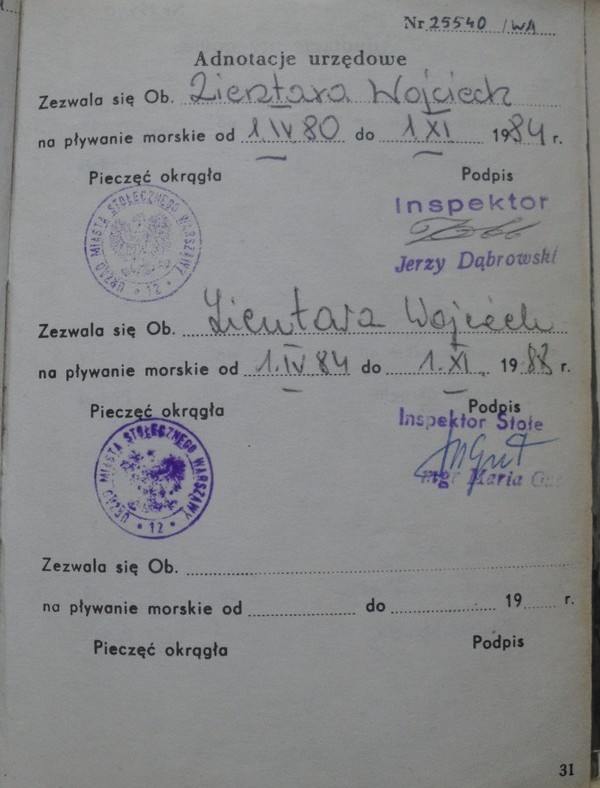 Nr 25540 /WA
Adnotacje urzędowe
Zezwala się Ob. Zientara Wojciech
na pływanie morskie od 1 IV 80 do 1 XI 1984 r.
Pieczęć okrągła Podpis
URZĄD MIASTA STOŁECZNEGO WARSZAWY * 12 *
Inspektor
Jerzy Dąbrowski
Zezwala się Ob. Zientara Wojciech
na pływanie morskie od 1.IV.84 do 1.XI. 1988 r.
Pieczęć okrągła Podpis
URZĄD MIASTA STOŁECZNEGO WARSZAWY * 12 *
Inspektor Stołe
mgr Maria
Zezwala się Ob.
na pływanie morskie od do 19 r.
Pieczęć okrągła Podpis
31